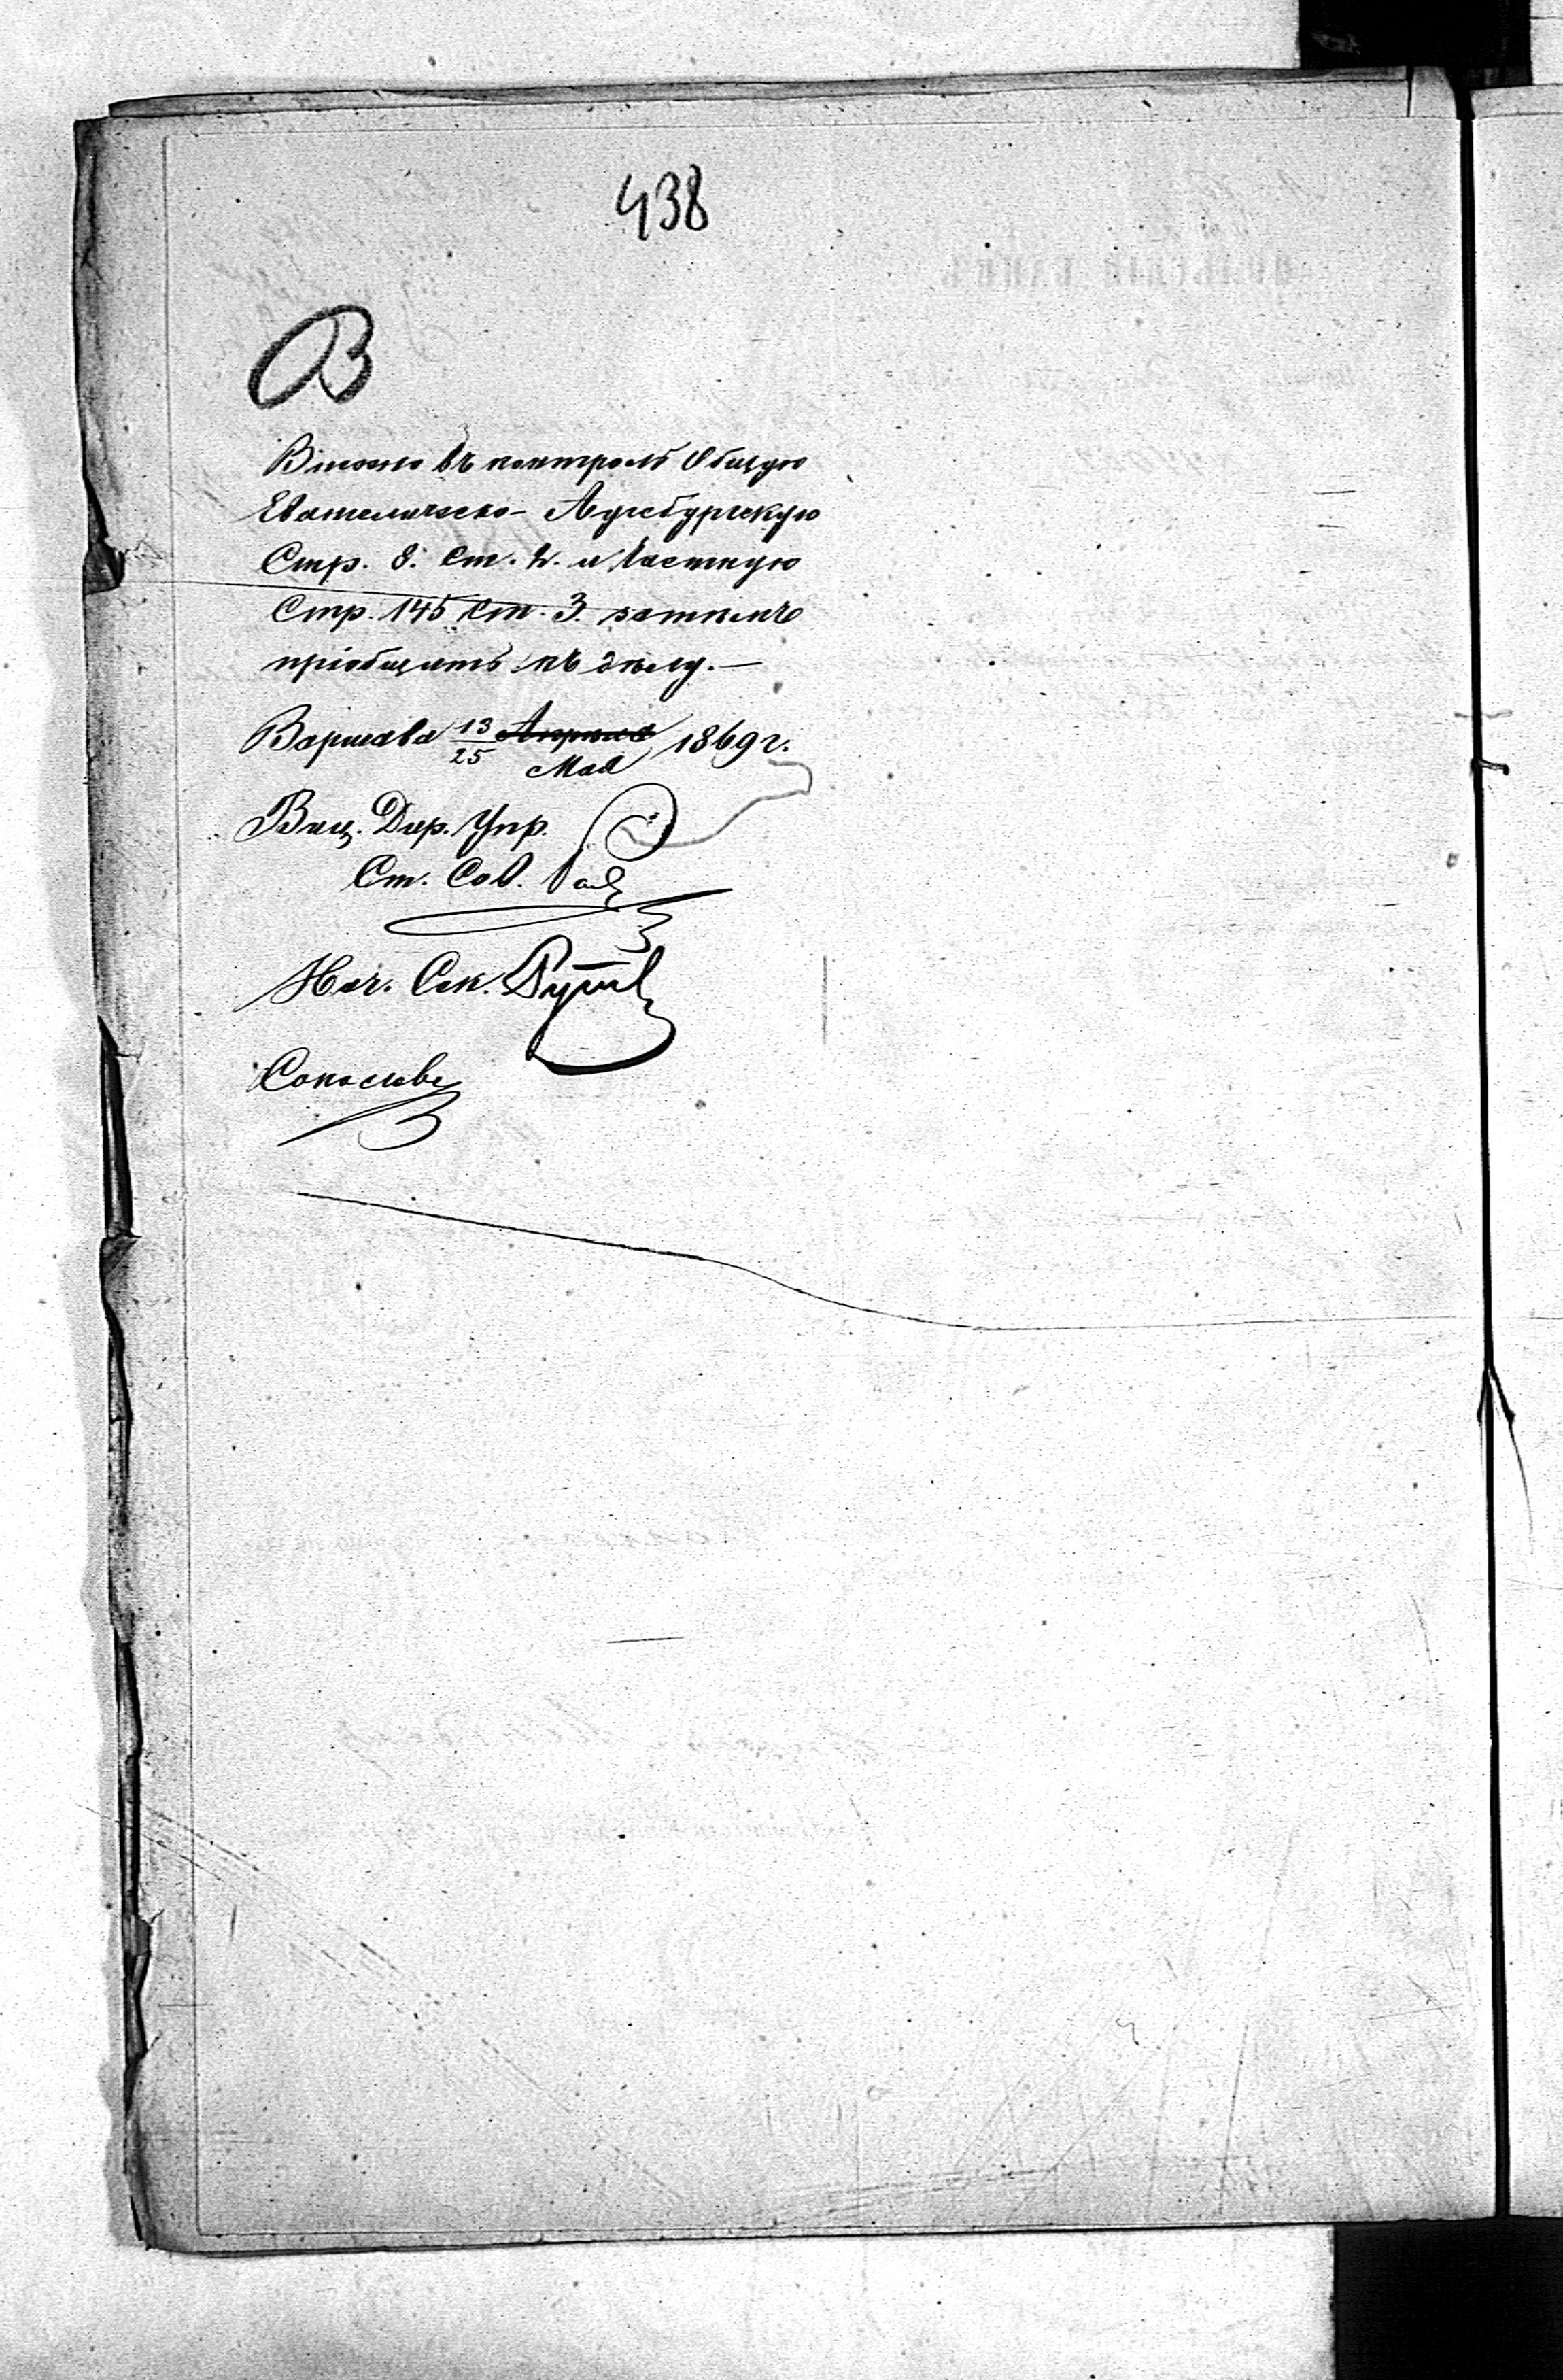 438
В
Внесено въ контроль Общую
Евангелическо-Аугсбургскую
Стр. 8. Ст. 2. и Частную
Стр. 145 Ст. 3. затѣмъ
пріобщить къ дѣлу.—
Варшава 13/25 Апрѣля Мая 1869 г.
Виц. Дир. Упр.
Ст. Сов.
Нач. Сек.
Соколовъ